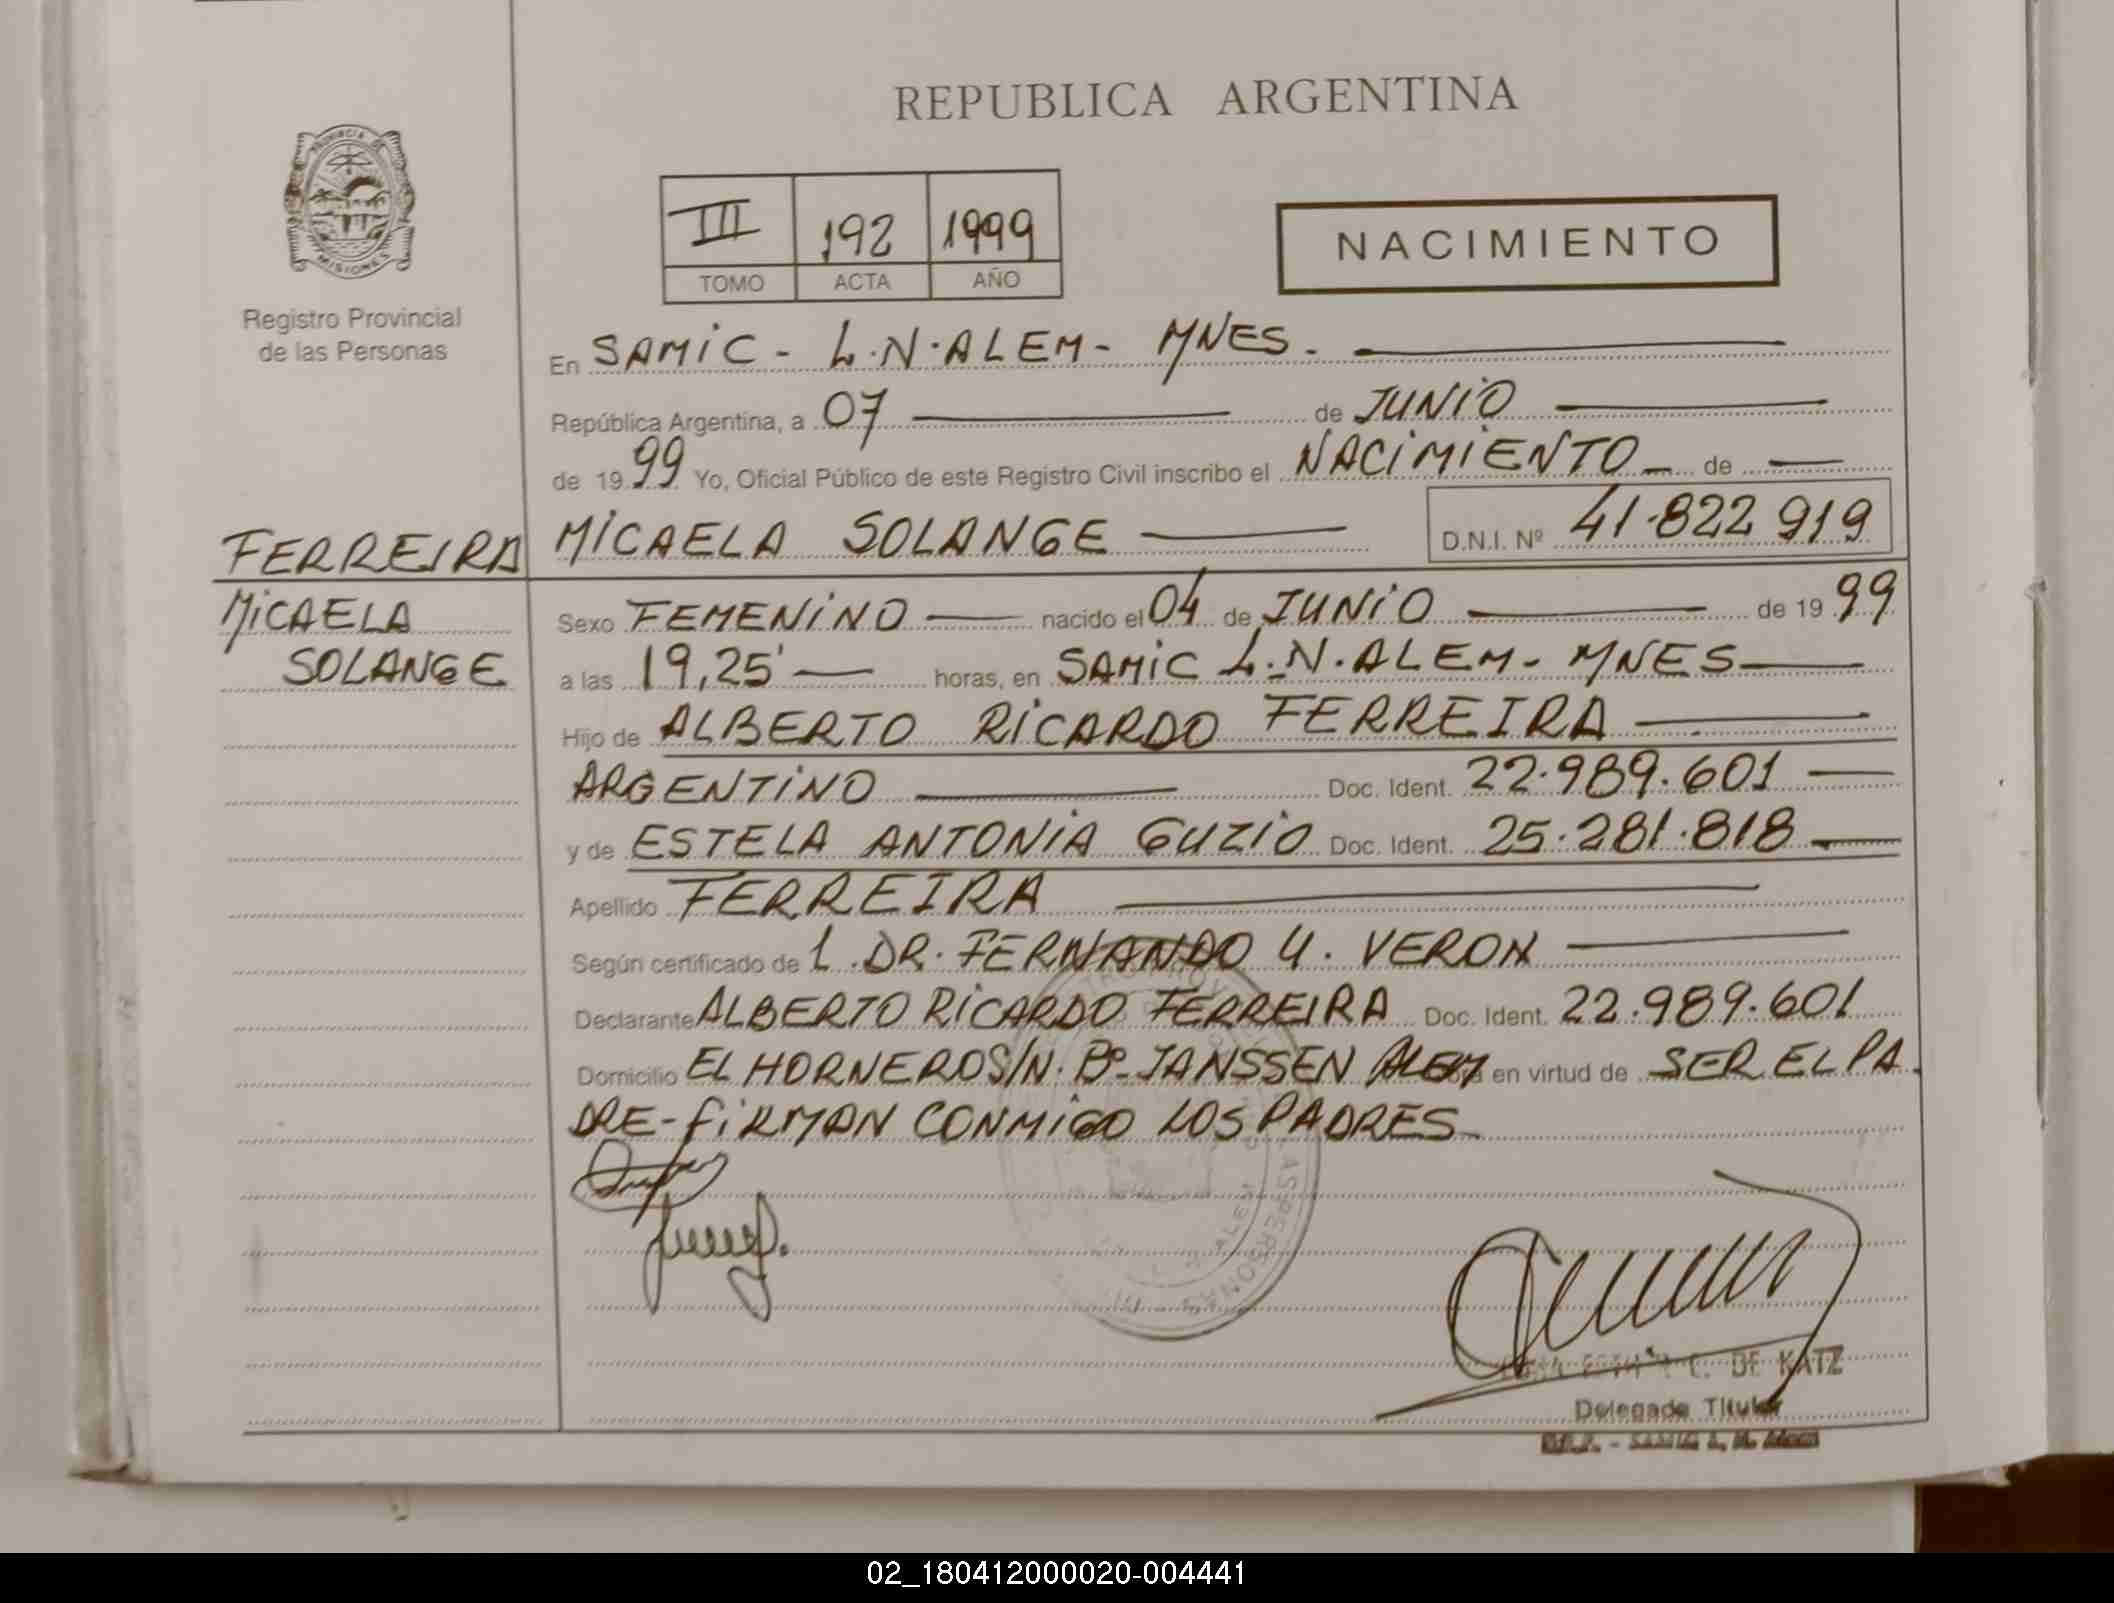 REPUBLICA ARGENTINA
PROVINCIA DE
MISIONES
Registro Provincial
de las Personas
III 192 1999
TOMO ACTA AÑO
NACIMIENTO
En SAMIC - L.N.ALEM - MNES.
República Argentina, a 07 de JUNIO
de 1999 Yo, Oficial Público de este Registro Civil inscribo el NACIMIENTO de
MICAELA SOLANGE D.N.I. Nº 41.822 919
FERREIRA
MICAELA
SOLANGE
Sexo FEMENINO nacido el 04 de JUNIO de 1999
a las 19,25' horas, en SAMIC L.N.ALEM - MNES
Hijo de ALBERTO RICARDO FERREIRA
ARGENTINO Doc. Ident. 22.989.601
y de ESTELA ANTONIA GUZIO Doc. Ident. 25.281.818
Apellido FERREIRA
Según certificado de L. DR. FERNANDO U. VERON
Declarante ALBERTO RICARDO FERREIRA Doc. Ident. 22.989.601
Domicilio EL HORNERO S/N. Bº JANSSEN ALEM en virtud de SER EL PA
DRE - FIRMAN CONMIGO LOS PADRES
AS PERSONAS
ALEM
C. DE KATZ
Delegada Titular
02_180412000020-004441